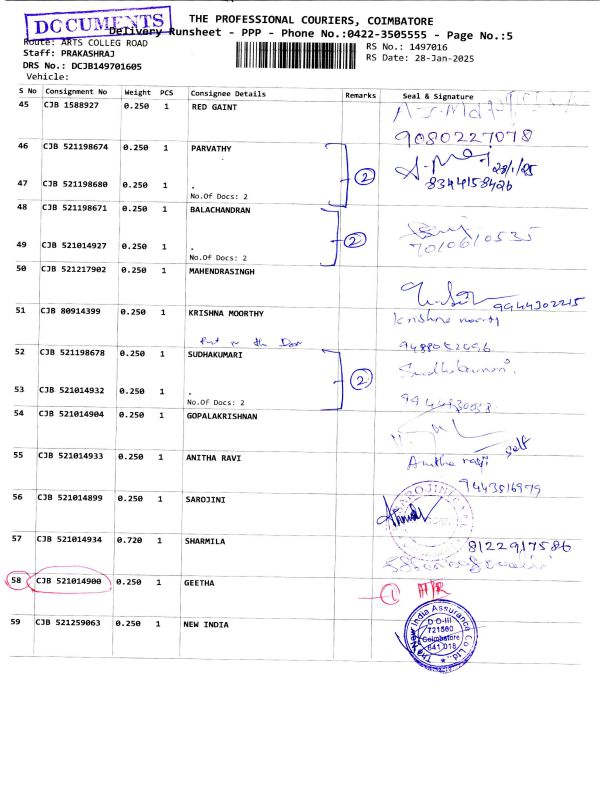 DOCUMENTS
THE PROFESSIONAL COURIERS, COIMBATORE
Delivery Runsheet - PPP - Phone No.:0422-3505555 - Page No.:5
Route: ARTS COLLEG ROAD
RS No.: 1497016
Staff: PRAKASHRAJ
RS Date: 28-Jan-2025
DRS No.: DCJB149701605
Vehicle:
S No Consignment No Weight PCS Consignee Details Remarks Seal & Signature
45 CJB 1588927 0.250 1 RED GAINT
9080227078
46 CJB 521198674 0.250 1 PARVATHY
28/1/25
2
8344158426
47 CJB 521198680 0.250 1 .
No.Of Docs: 2
48 CJB 521198671 0.250 1 BALACHANDRAN
7010610535
2
49 CJB 521014927 0.250 1 .
No.Of Docs: 2
50 CJB 521217902 0.250 1 MAHENDRASINGH
9944302215
51 CJB 80914399 0.250 1 KRISHNA MOORTHY
Krishna moorty
Put in the Door
9488052696
52 CJB 521198678 0.250 1 SUDHAKUMARI
Sudhakumari
2
53 CJB 521014932 0.250 1 .
No.Of Docs: 2
54 CJB 521014904 0.250 1 GOPALAKRISHNAN
self
55 CJB 521014933 0.250 1 ANITHA RAVI
Anitha ravi
9443516979
56 CJB 521014899 0.250 1 SAROJINI
57 CJB 521014934 0.720 1 SHARMILA
8122917586
58 CJB 521014900 0.250 1 GEETHA
1 A/R
59 CJB 521259063 0.250 1 NEW INDIA
The New India Assurance Co Ltd.
D O-III
721500
Coimbatore
641 018